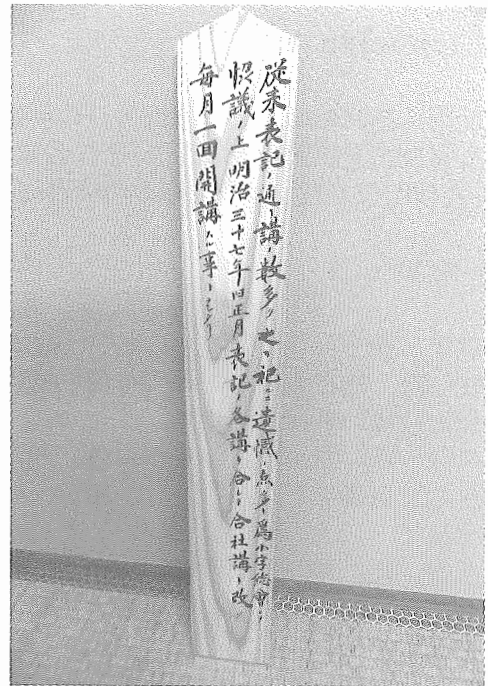 従来表記ノ通講ノ数多ク之ヲ祀ニ遺憾ノ点多ク為小字総会ニ
協議ノ上明治三十七年旧正月表記ノ各講ヲ合シ合社講ト改
毎月一回開講スル事トセリ